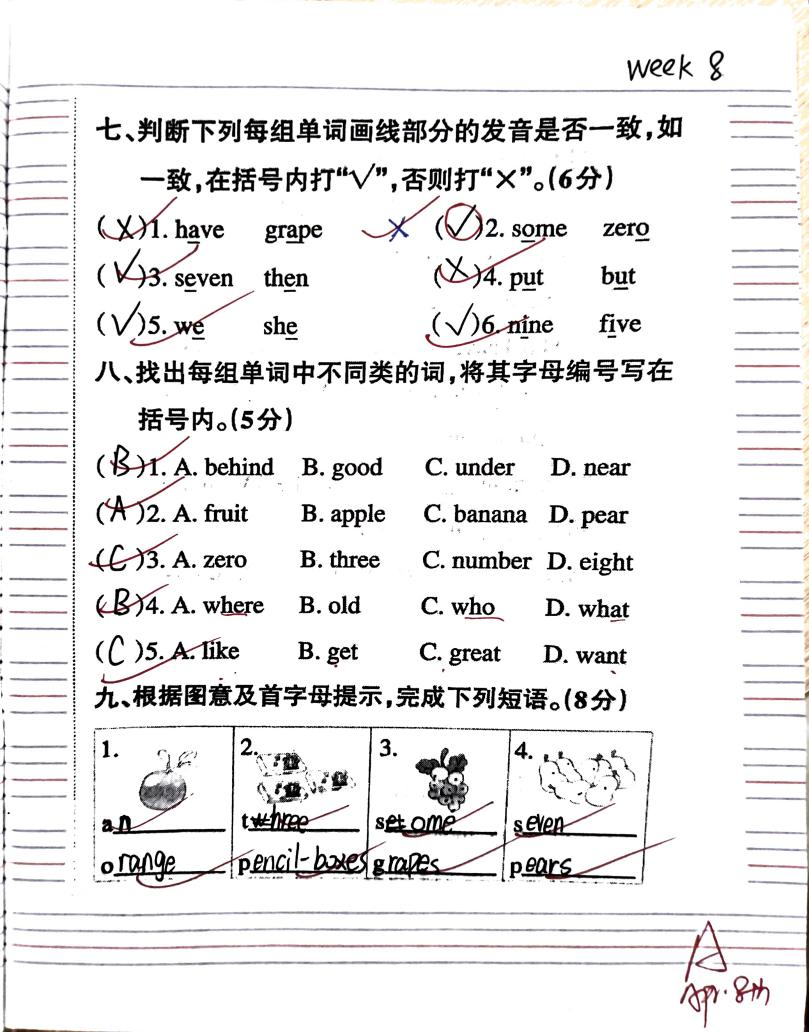 week 8
七、判断下列每组单词画线部分的发音是否一致,如
一致,在括号内打“√”,否则打“×”。(6分)
(X)1. have grape X (√)2. some zero
(√)3. seven then (X)4. put but
(√)5. we she (√)6. nine five
八、找出每组单词中不同类的词,将其字母编号写在
括号内。(5分)
(B)1. A. behind B. good C. under D. near
(A)2. A. fruit B. apple C. banana D. pear
(C)3. A. zero B. three C. number D. eight
(B)4. A. where B. old C. who D. what
(C)5. A. like B. get C. great D. want
九、根据图意及首字母提示,完成下列短语。(8分)
1. 2. 3. 4.
an three some seven
orange pencil-boxes grapes pears
A
Apr. 8th